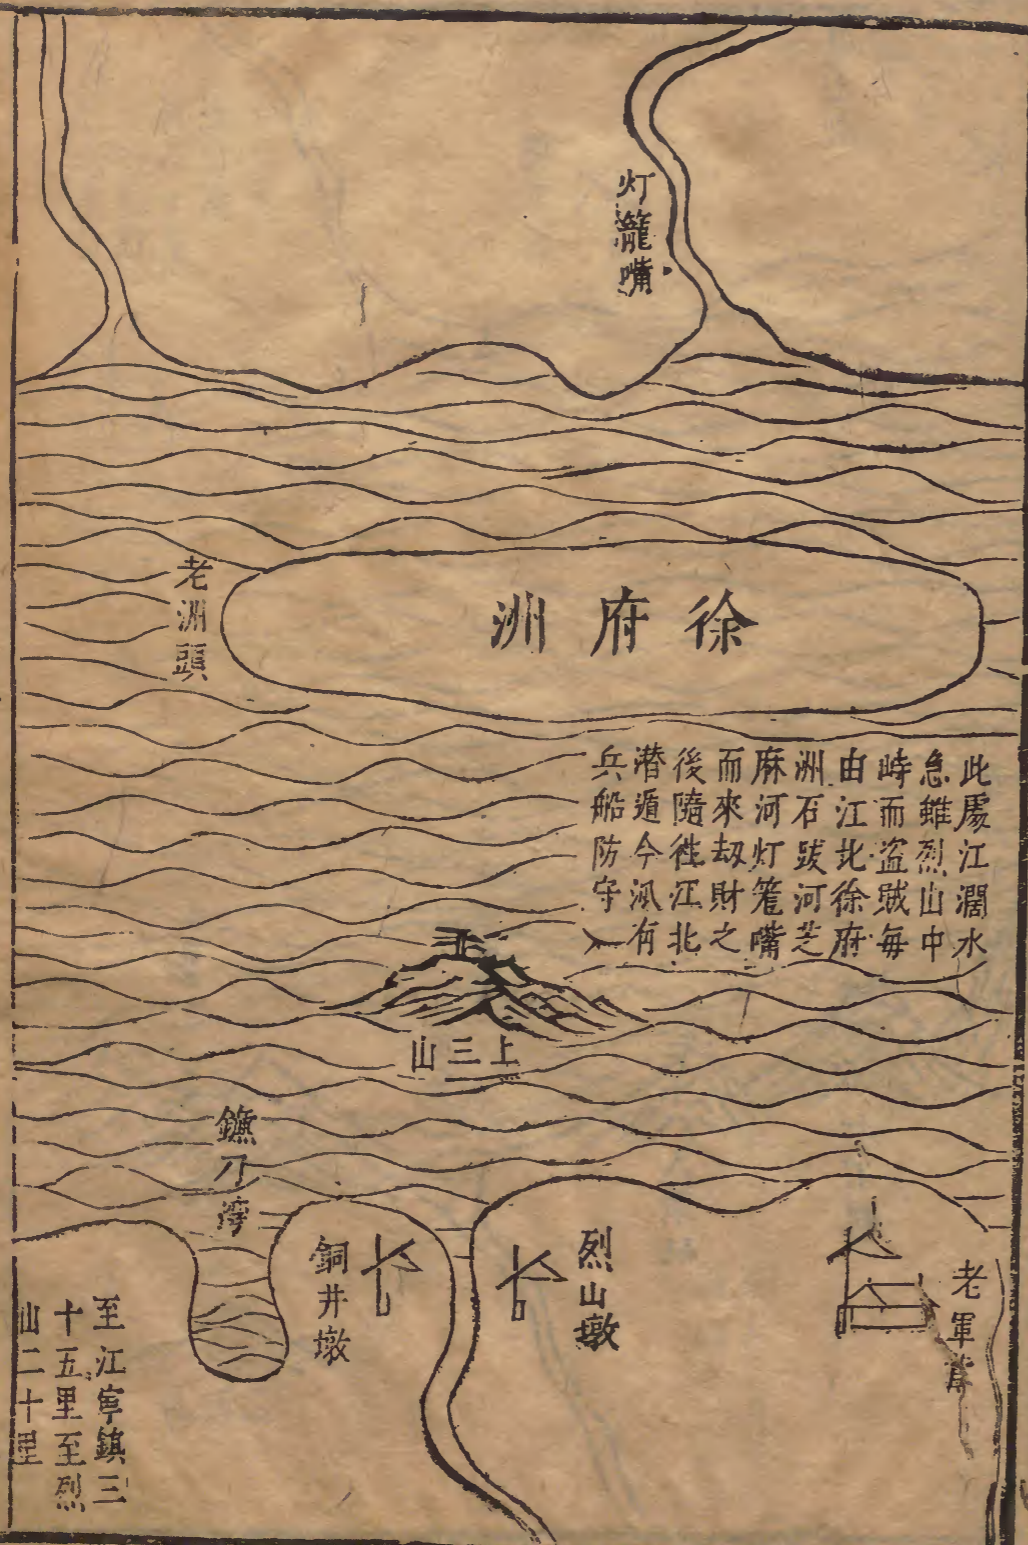 灯籠嘴
徐府洲
老洲頭
此處江濶水
急雖烈山中
峙而盗賊每
由江北徐府
洲石跋河芝
麻河灯篭嘴
而來刼財之
後隨徃江北
潜遁今派有
兵船防守
上三山
鐮刀湾
銅井墩
烈山墩
老軍營
至江寧鎮三
十五里至烈
山二十里